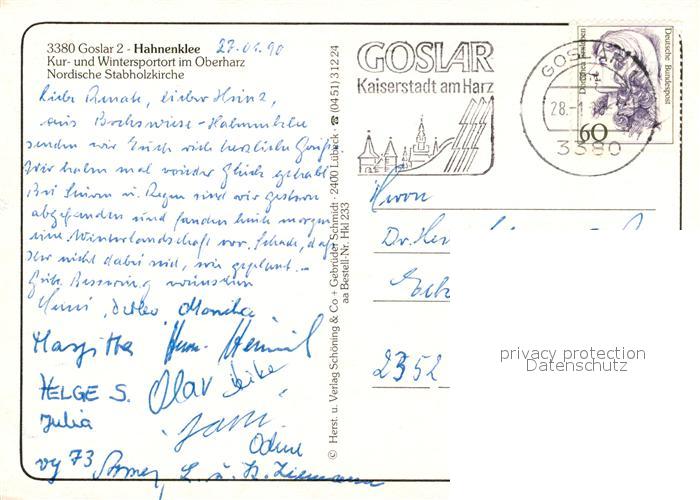 3380 Goslar 2 - Hahnenklee 27.01.90
Kur- und Wintersportort im Oberharz
Nordische Stabholzkirche
Liebe Renate, lieber Heinz,
aus Bockswiese-Hahnenklee
senden wir Euch viele herzliche Grüße
Wir haben mal wieder Glück gehabt
Bei Sturm u. Regen sind wir gestern
abgefanden und fanden heute morgen
eine Winterlandschaft vor. Schade, daß
Ihr nicht dabei seid, wie geplant.
Gute Besserung wünschen
Heini, Detlev Monika
Margitta Heinrich
HELGE S. Olav Heike
Julia
Odine
© Herst. u. Verlag Schöning & Co + Gebrüder Schmidt · 2400 Lübeck · ☎ (0451) 31224
aa Bestell-Nr. Hkl 233
GOSLAR
Kaiserstadt am Harz
GOSLAR
28.-1.
3380
Deutsche Bundespost
60
Herrn
Dr. Her
Eck
2352
privacy protection
Datenschutz